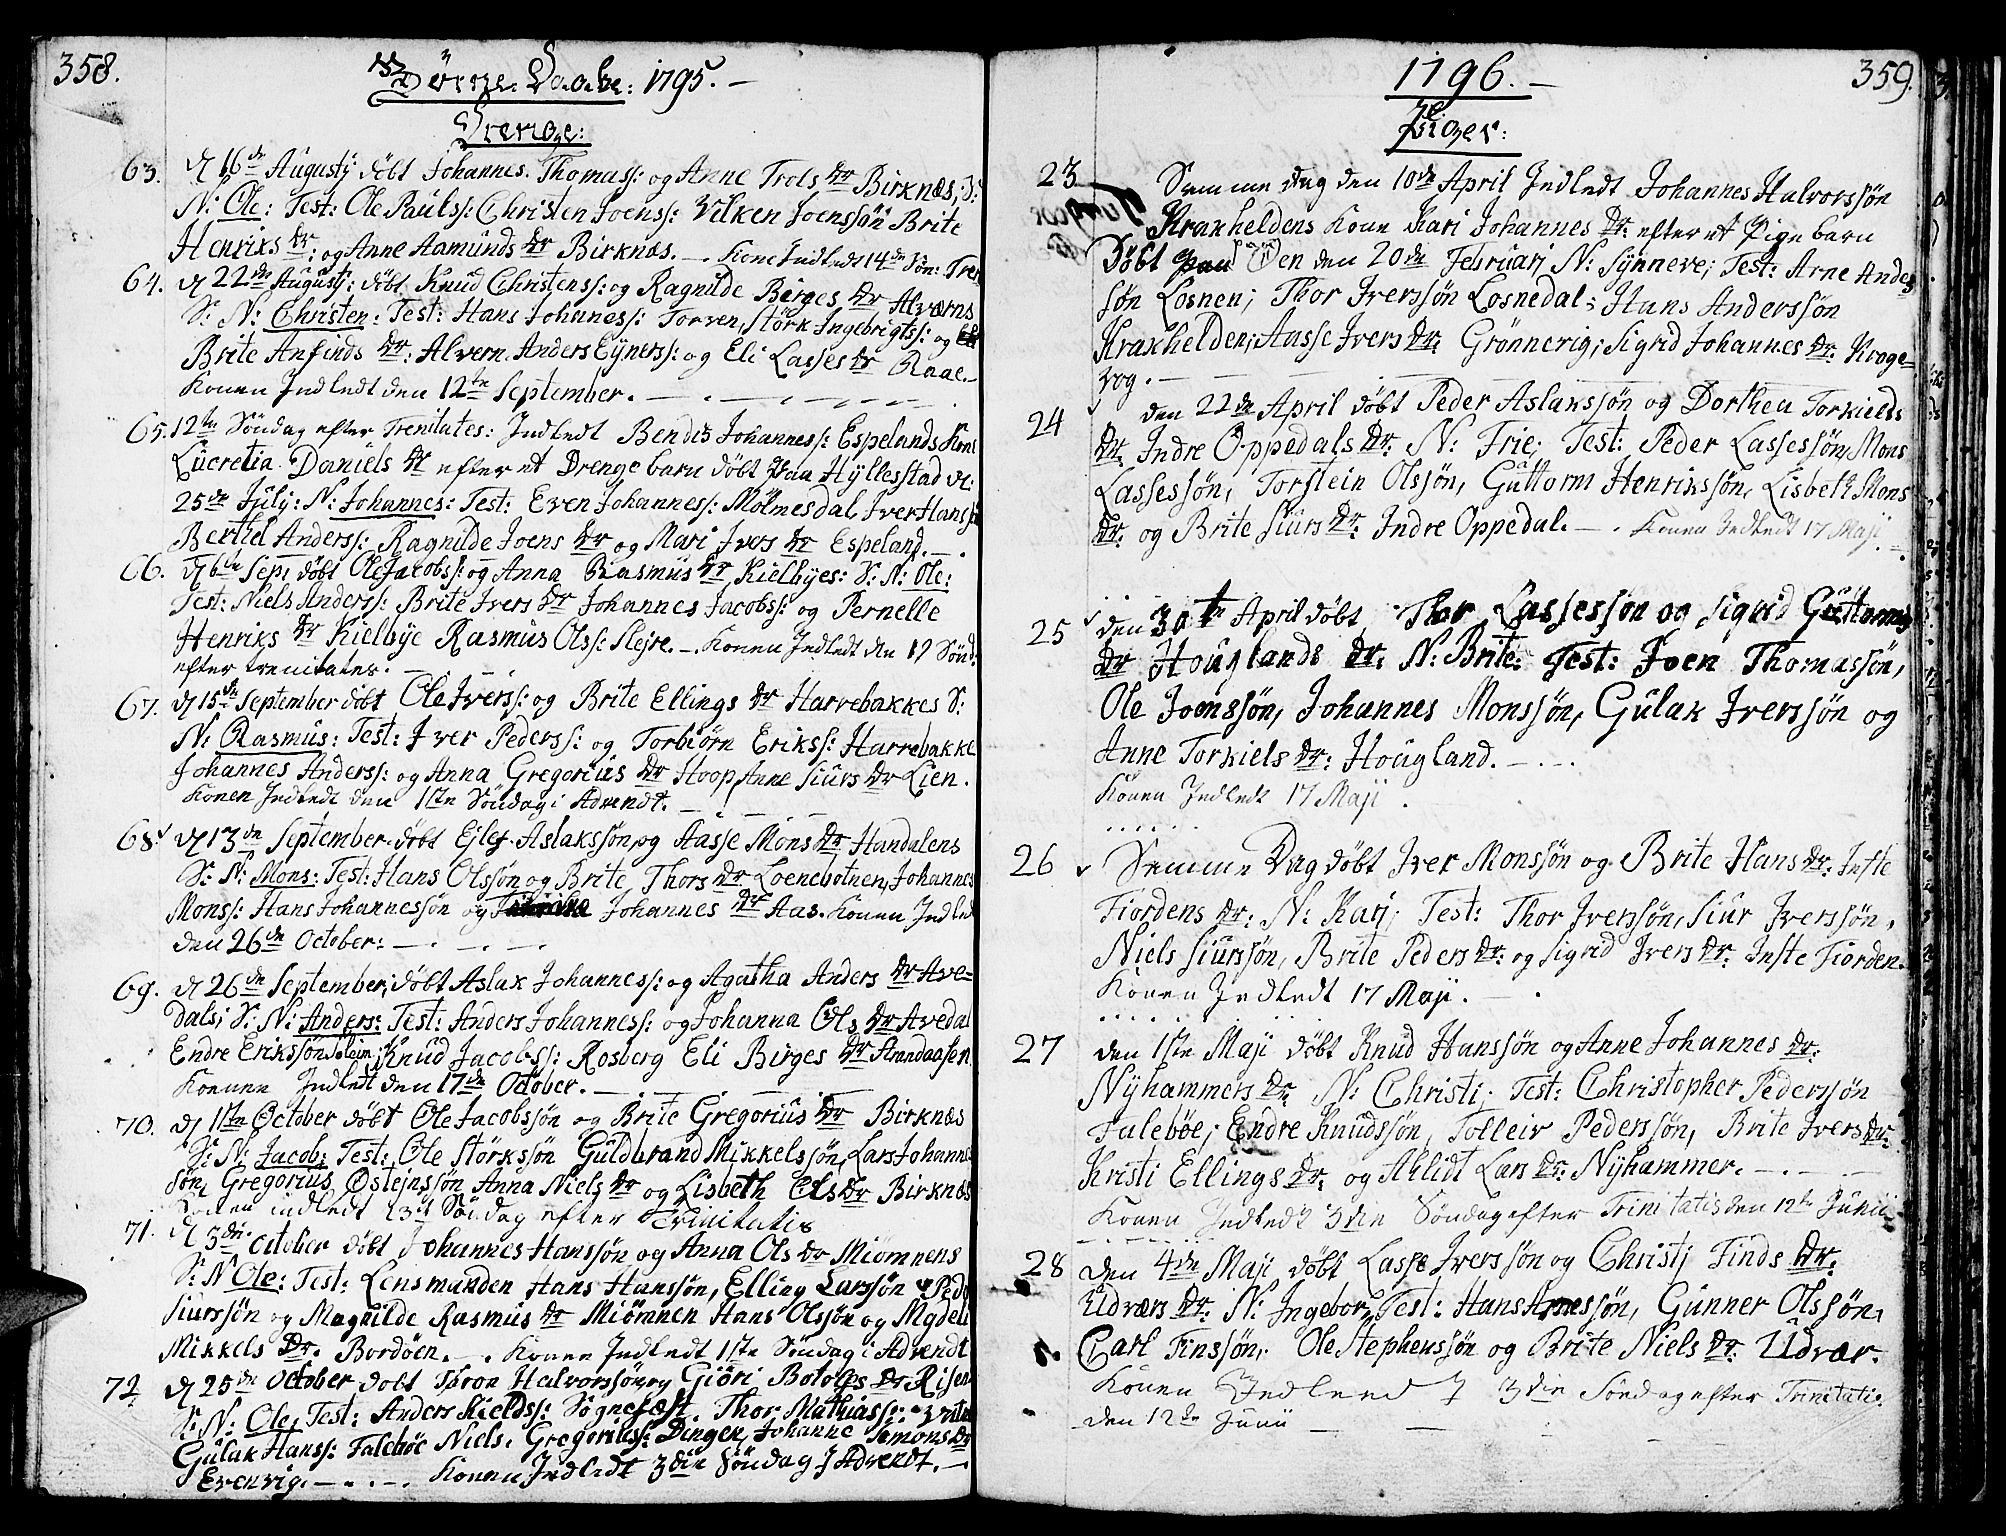 358.
Børne Daabe: 1795.
Drenge:
63. d 16de Augustj døbt Johannes Thomass: og Anne Trols Dr Birknæs; S:
N: Ole: Test: Ole Pauls: Christen Joens: Vilken Joenssøn Brite
Henriks Dr: og Anne Aamunds Dr Birknæs. Kone Indledt 14de Søn: Tre
64. d 22de August: døbt Knud Christens: og Ragnilde Børges Dr Alværns
S: N: Christen: Test: Hans Johannes: Torven, Størk Ingebrigts: og
Brite Anfinds Dr: Alvern. Anders Eÿners: og Eli Lasses Dr Raae.
Konen Indledt den 12te September.
65. 12te Søndag efter Trenitates: Indledt Bendix Johannes: Espelands Kone
Lucretia Daniels Dr efter et Drenge barn døbt paa Hÿllesstad d:
25de Julÿ: N: Johannes: Test: Even Johannes: Mølmesdal, Iver Hans
Berthel Anders: Ragnilde Joens Dr og Mari Ivers Dr Espeland.
66. d 6te Sep: døbt Ole Jacobs: og Anna Rasmus Dr Kielbyes: S: N: Ole:
Test: Niels Anders: Brite Ivers Dr Johannes Jacobs: og Pernelle
Henriks Dr Kielbÿe Rasmus Ols: Slejre. Konen Indledt den 19 Sønd:
efter trenitates.
67. d 15de September døbt Ole Ivers: og Brite Ellings Dr Harrebakkes S:
N: Rasmus: Test: Iver Peders: og Torbiørn Eriks: Harrebakke
Johannes Anders: og Anna Gregorius Dr Hoop Anne Siurs Dr Lien.
Konen Indledt den 1ste Søndag i Advendt.
68 d 13de September døbt Ejlef Aslakssøn og Aasse Mons Dr Handalens
S: N: Mons: Test: Hans Olssøn og Brite Thors Dr Loenebotnen, Johannes
Mons: Hans Johannessøn og Johannes Dr Aas. Konen Indled
den 26de October:
69. d 26de September; døbt Aslak Johannes: og Agatha Anders Dr Ave=
dals; S: N: Anders: Test: Anders Johannes: og Johanna Ols Dr Avedal
Endre Erikssøn Soleim; Knud Jacobs: Rosberg Eli Børges Dr Strandaasen
Konen Indledt den 17de October.
70. d 11te October døbt Ole Jacobssøn og Brite Gregorius Dr Birknæs
S: N: Jacob: Test: Ole Størkssøn Guldbrand Mikkelssøn, Lars Johannes
søn, Gregorius Østejnssøn Anna Niels Dr og Lisbeth Ols Dr Birknæs
Konen indledt 23de Søndag efter Trinitatis
71. d 3die October døbt Johannes Hanssøn og Anna Ols Dr Miømnens
S: N Ole: Test: Lensmanden Hans Hanssøn, Elling Larssøn Peder
Siurssøn og Magnilde Rasmus Dr Miømnen Hans Olssøn og Mgdeli
Mikkels Dr. Bordøen. Konen Indledt 1ste Søndag i Advendt
72 d 25de October døbt Thron Halvorssøn og Giøri Botolfs Dr Risen
S: N: Ole, Test: Anders Kields: Søgnefæst. Thor Mathias:
Gulak Hans: Falebøe Niels Gregorius: Dingen, Johanne Simons Dr
Evenvig. Konen Indledt 3die Søndag I Advendt.
1796.
359.
Piger:
23 Samme dag den 10de April Indledt Johannes Halvorssøn
Kraxheldens Kone Kari Johannes Dr: efter et Pige barn
Døbt paa Øen den 20de Februarj N: Synneve; Test: Arne Anders
søn Losnen; Thor Iverssøn Losnedal; Hans Anderssøn
Kraxhelden; Aasse Ivers Dr: Grønnevig; Sigrid Johannes Dr: Krage-
vog.
24 den 22de April døbt Peder Aslakssøn og Dorthea Torkields
Dr: Indre Oppedals Dr: N: Frie; Test: Peder Lassessøn, Mons
Lassessøn, Torstein Olssøn, Guttorm Henrikssøn, Lisbeth Mons
Dr: og Brite Siurs Dr: Indre Oppedal. Konen Indledt 17 Maji
25 den 30te April døbt Thor Lassessøn og Sigrid Guttorms
Dr Houglands Dr: N: Brite: Test: Joen Thomassøn,
Ole Joenssøn, Johannes Monssøn, Gulak Iverssøn og
Anne Torkiels Dr: Hougland.
Konen Indledt 17 Maji.
26 Samme Dag døbt Iver Monssøn og Brite Hans Dr: Inste
Fiordens Dr: N: Kari; Test: Thor Iverssøn, Siur Iverssøn,
Niels Siurssøn, Brite Peders Dr: og Sigrid Ivers Dr: Inste Fiorden.
Konen Indledt 17 Maji.
27 den 1ste Maji døbt Knud Hanssøn og Anne Johannes Dr:
Nÿhammers Dr: N: Christi; Test: Christopher Pederssøn
Falebøe; Endre Knudssøn, Tolleiv Pederssøn, Brite Ivers Dr:
Kristi Ellings Dr: og Ahlidt Lars Dr: Nÿhammer.
Konen Indledt 3die Søndag efter Trinitatis den 12te Junii
28 den 4de Maji døbt Lasse Iverssøn og Christj Finds Dr:
Udværs Dr: N: Ingebor, Test: Hans Arnessøn, Gunner Olssøn,
Carl Finssøn, Ole Stephenssøn og Brite Niels Dr: Udvær.
Konen Indledt 3die Søndag efter Trinitati:
den 12te Junii